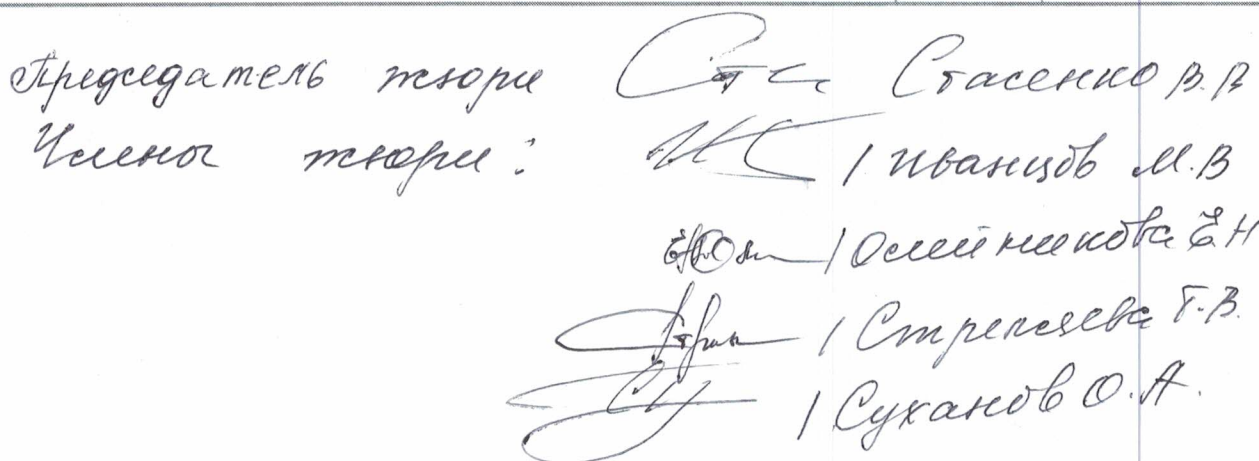 Председатель жюри Стасенко В.В
Члены жюри: / Иванцов М.В
/ Олейникова Е.Н
/ Стрельцева Т.В.
/ Суханов О.А.